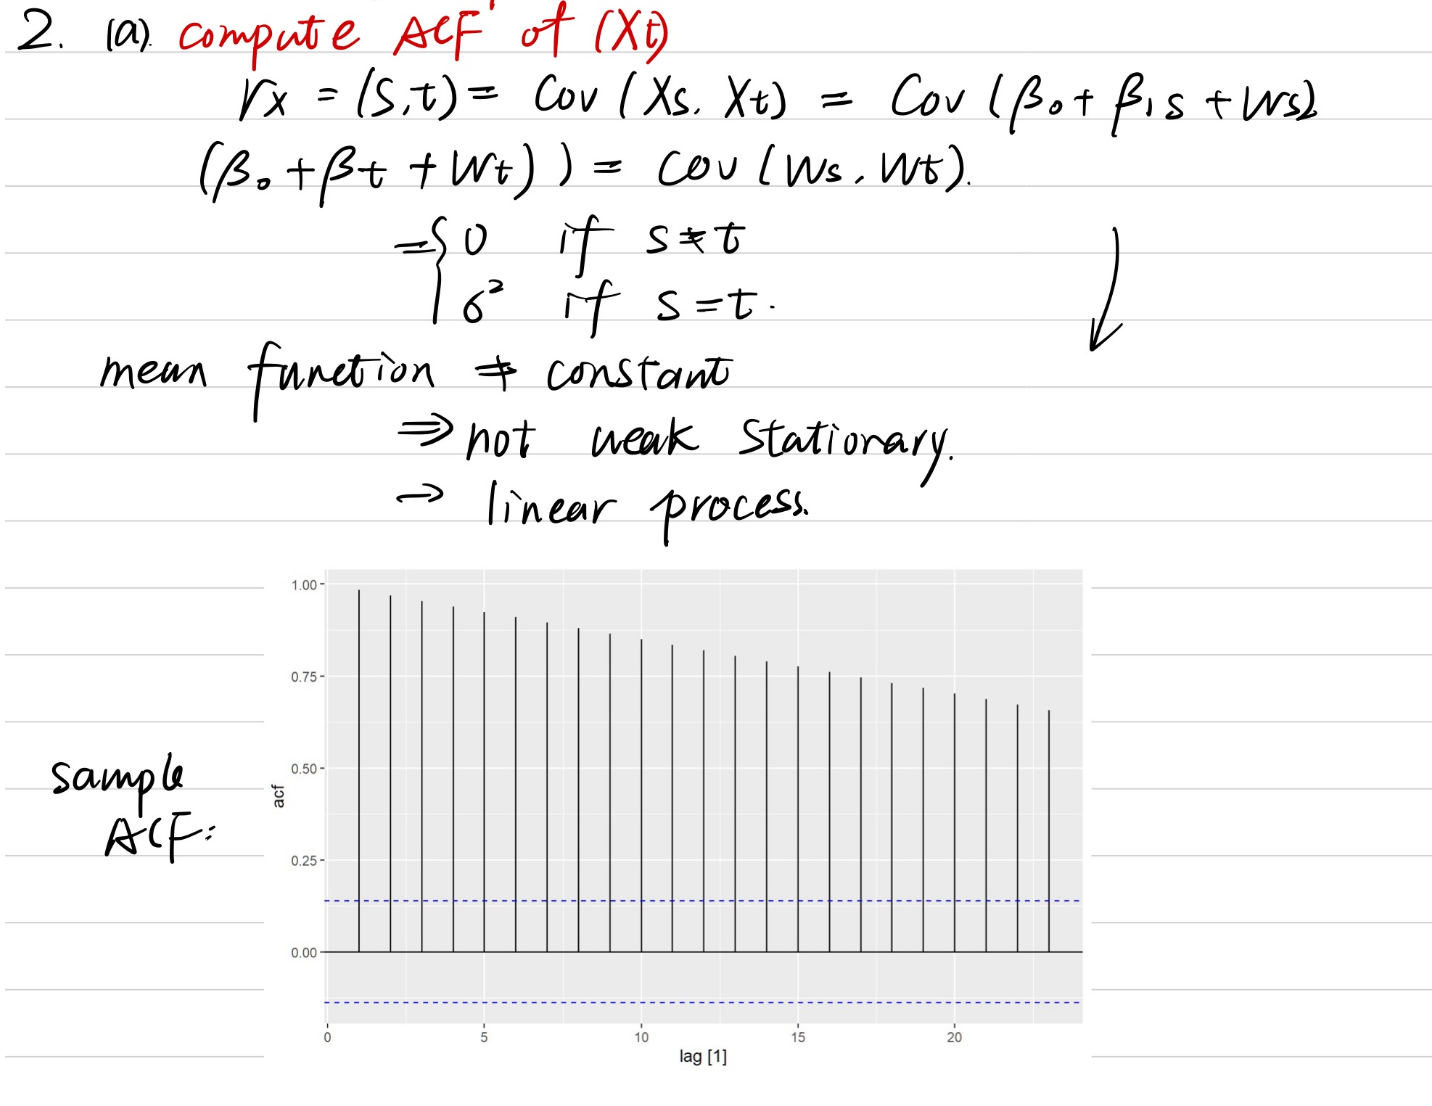 2. (a). compute ACF of (Xt)
γx = (s,t) = Cov (Xs, Xt) = Cov (β₀ + β₁s + Ws),
(β₀ + βt + Wt)) = cov (Ws, Wt).
= { 0 if s ≠ t
σ² if s = t.
mean function ≠ constant
⇒ not weak stationary.
→ linear process.
sample
ACF:
1.00
0.75
0.50
0.25
0.00
acf
0 5 10 15 20
lag [1]